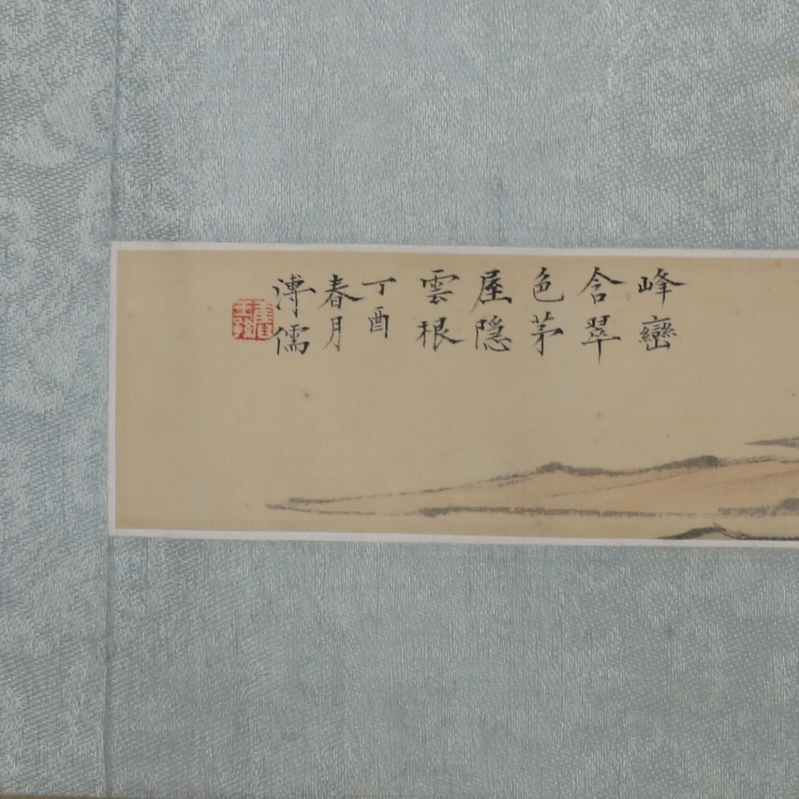 峰巒
含翠
色茅
屋隠
雲根
丁酉
春月
溥儒